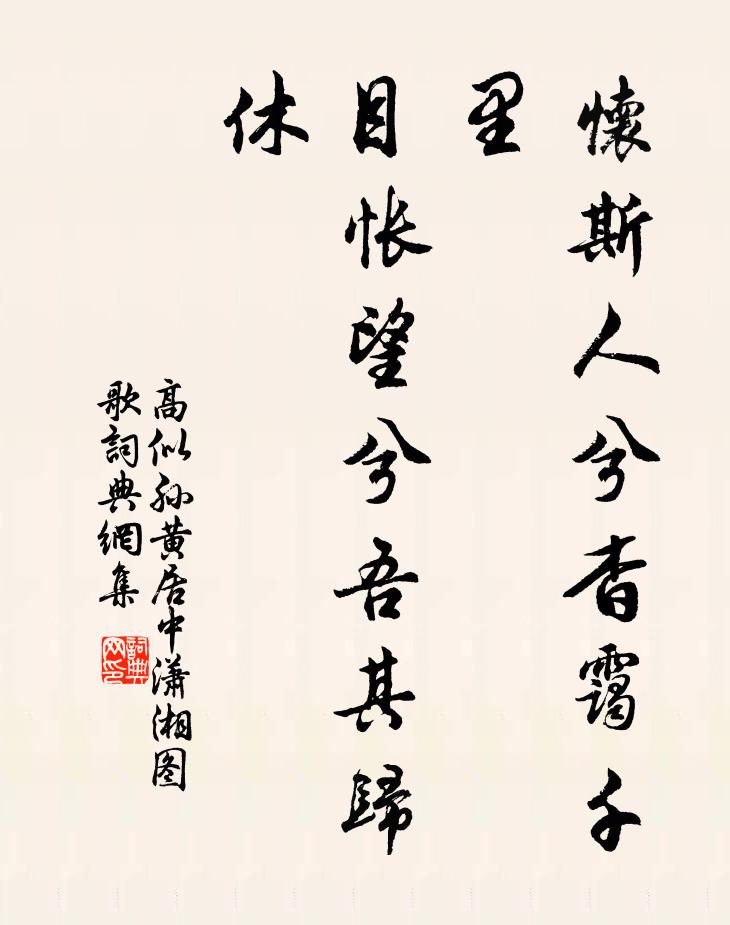 懷斯人兮杳靄千
里
目怅望兮吾其歸
休
高似孙黄居中瀟湘图
歌詞典網集
詞典
网印